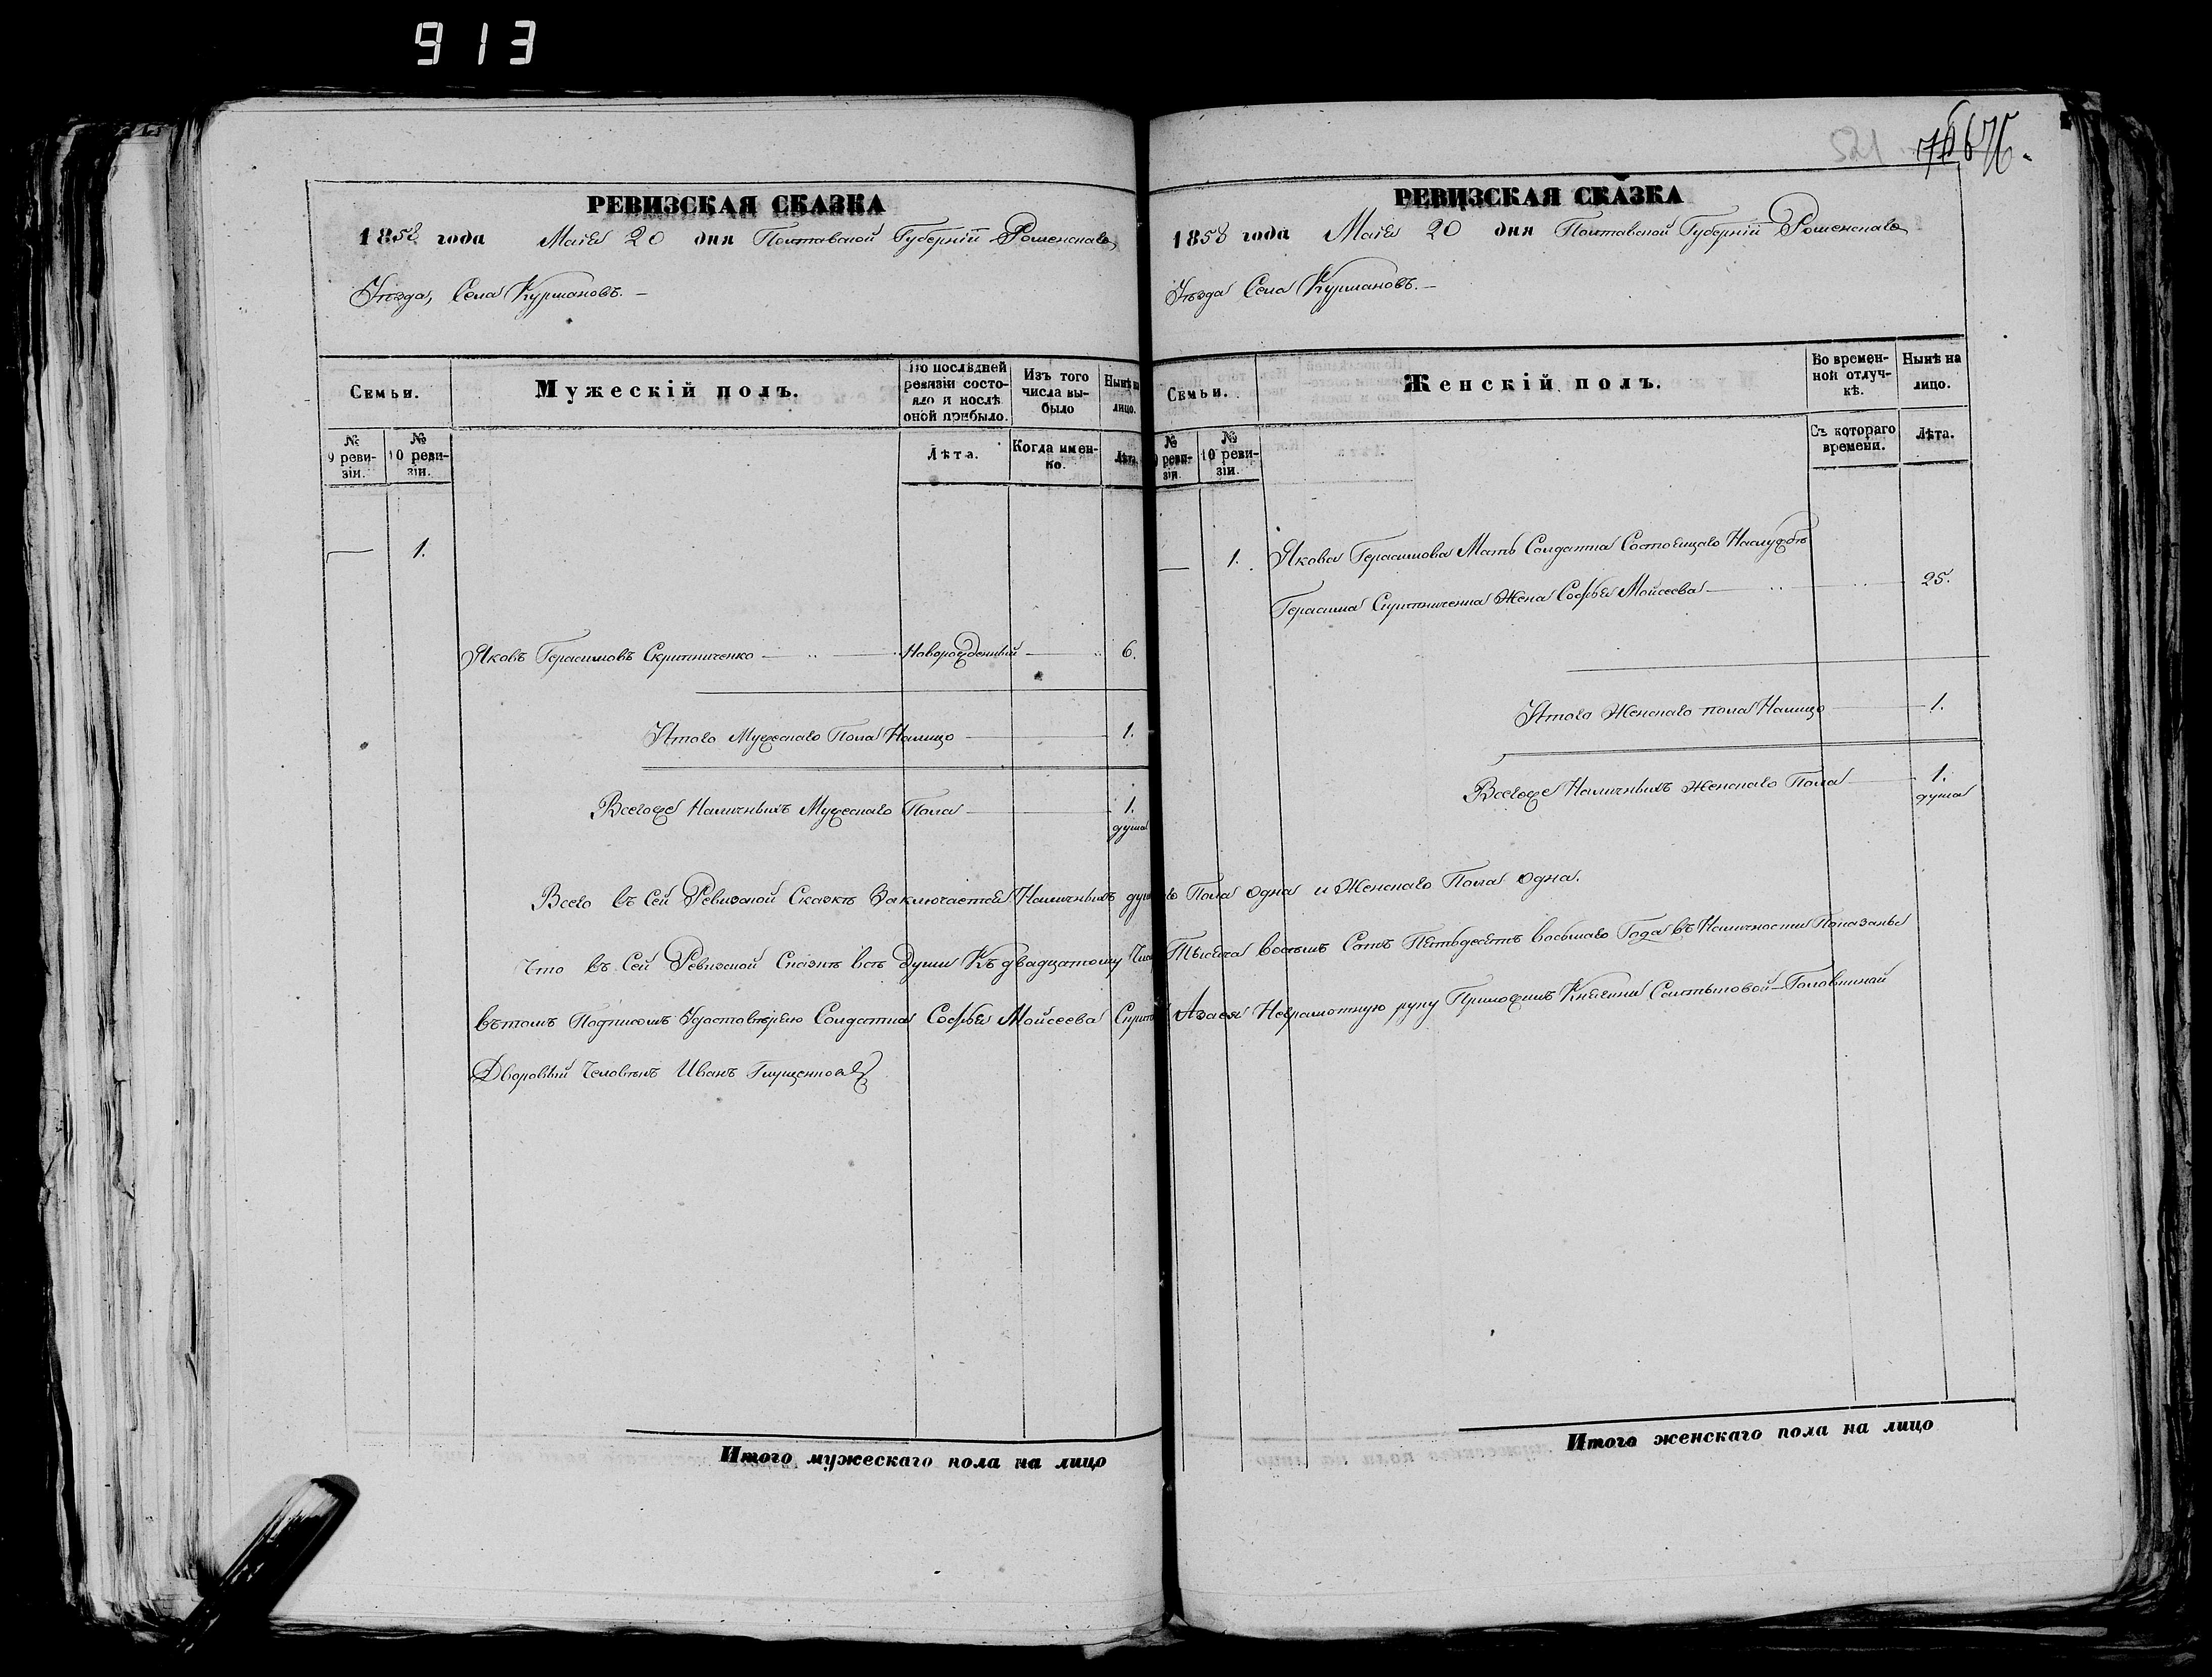 913
521
676.
РЕВИЗСКАЯ СКАЗКА
1858 года Маія 20 дня Полтавской Губерніи Роменскаго
Уѣзда, Села Курмановъ. —
Семьи.
Мужескій полъ.
По послѣдней ревизіи состояло и послѣ оной прибыло.
Изъ того числа выбыло
Нынѣ на лицо.
№ 9 ревизіи.
№ 10 ревизіи.
Лѣта.
Когда именно.
Лѣта.
— 1.
Яковъ Герасимовъ Скритниченко — Новорожденный — 6.
Итого Мужескаго Пола Налицо — 1.
Всегоже Наличныхъ Мужескаго Пола — 1. душа
Всего въ Сей Ревизской Сказкѣ Заключается Наличныхъ душ
Что въ Сей Ревизской Сказкѣ всѣ души Къ двадцатому
вътомъ Подписомъ Удостовѣряю Солдатка Софья Моисеева
Дворовый Человѣкъ Иванъ Глущенко
Итого мужескаго пола на лицо
РЕВИЗСКАЯ СКАЗКА
1858 года Маія 20 дня Полтавской Губерніи Роменскаго
Уѣзда Села Курмановъ. —
Семьи.
Женскій полъ.
Во временной отлучкѣ.
Нынѣ на лицо.
№ 9 ревизіи.
№ 10 ревизіи.
Съ котораго времени.
Лѣта.
— 1. Якова Герасимова Мать Солдатка Состоящаго Наслужбѣ
Герасима Скритниченка Жена Софья Моисеева — 25.
Итого Женскаго пола Налицо — 1.
Всегоже Наличныхъ Женскаго Пола — 1. душа
Пола одна и Женскаго Пола одна.
Тысяча восемь Сотъ Пятьдесятъ восьмаго Года въ Наличности Показаны
Азаея Неграмотную руку Приложилъ Княгини Салтыковой-Головкиной
Итого женскаго пола на лицо